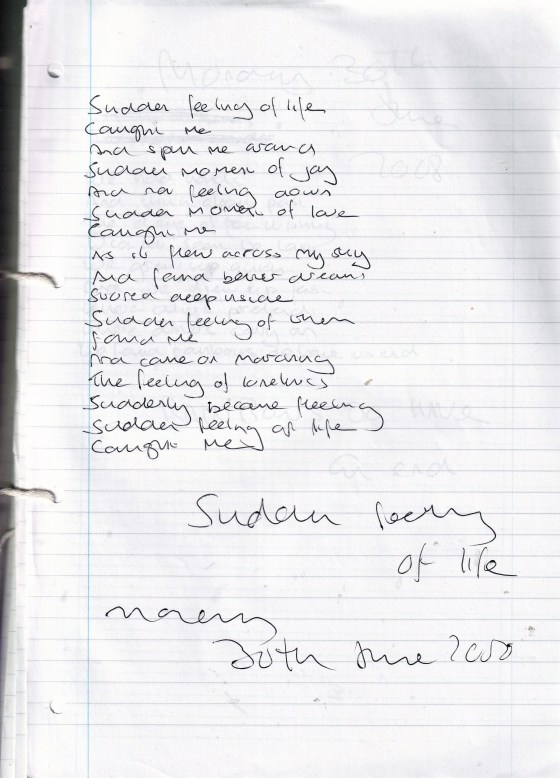 Sudden feeling of life
Caught me
And spun me around
Sudden moment of joy
And no feeling down
Sudden moment of love
Caught me
As it flew across my sky
And found better dreams
Stored deep inside
Sudden feeling of them
Found me
And came on
The feeling of loneliness
Suddenly became fleeting
Sudden feeling of life
Caught me
Sudden feeling
of life
30th June